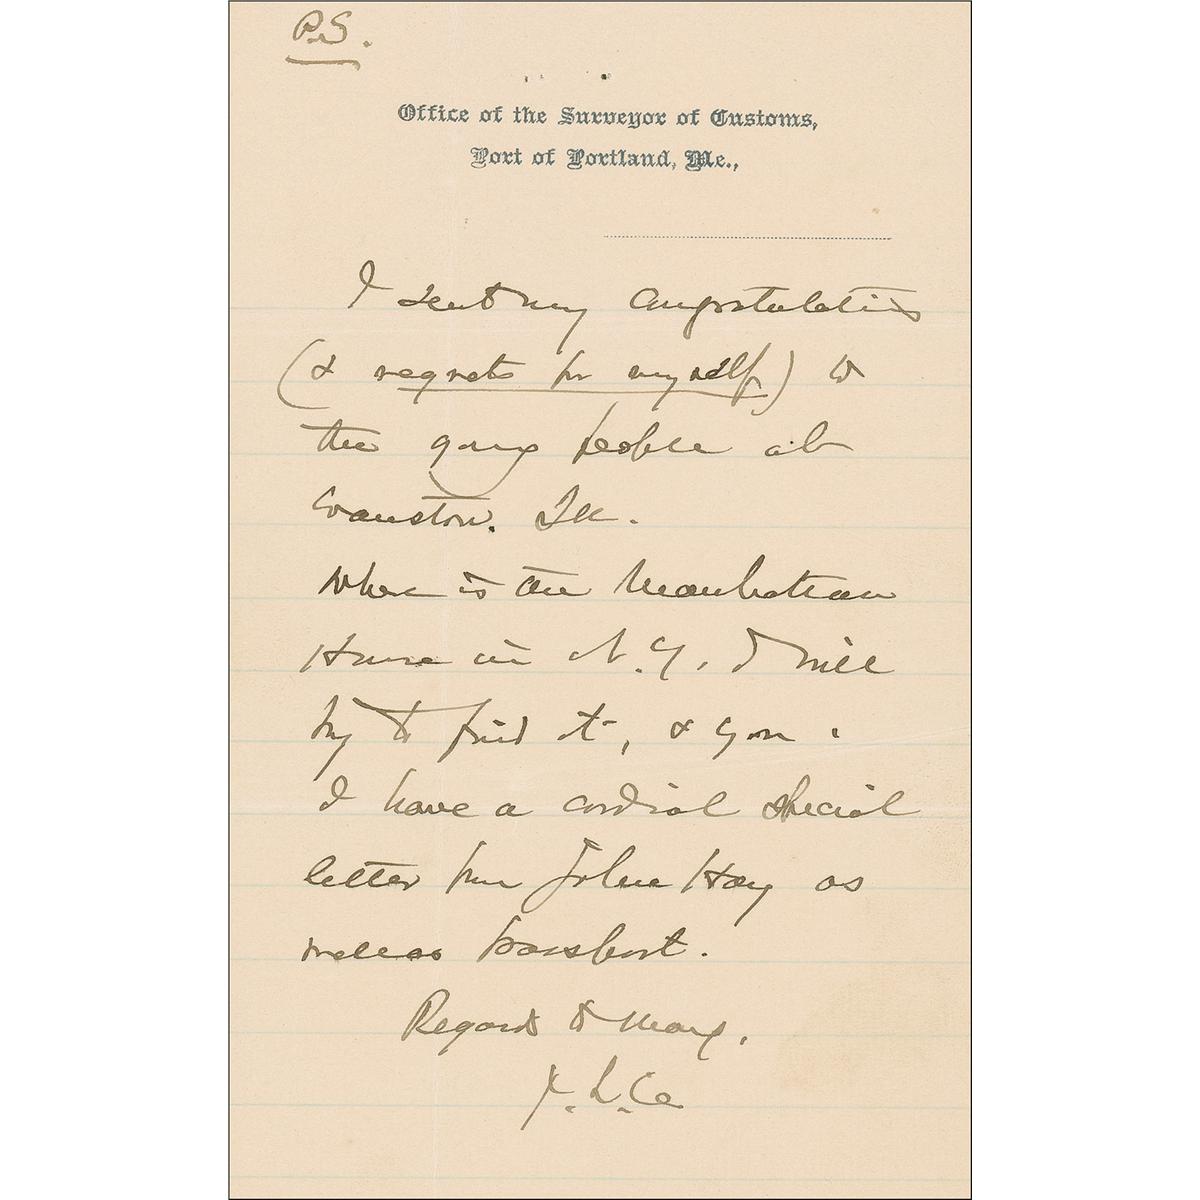 P.S.
Office of the Surveyor of Customs,
Port of Portland, Me.,
I sent my Congratulations
(& regrets for myself) to
the young people at
Evanston. Ill.
Where is the Manhattan
House in N.Y. I will
try to find it, & you.
I have a cordial special
letter from John Hay as
well as passport.
Regards to Mary.
J. L. C.